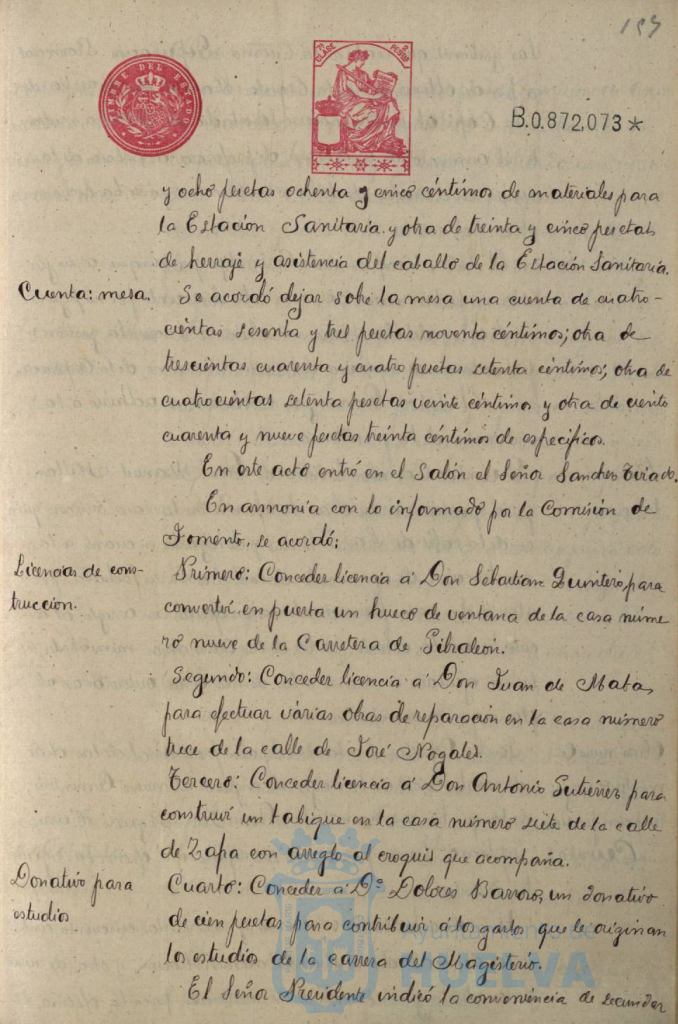 159
TIMBRE DEL ESTADO
CLASE
PESETAS
B.0.872,073*
y ocho pesetas ochenta y cinco céntimos de materiales para
la Estación Sanitaria y otra de treinta y cinco pesetas
de herraje y asistencia del caballo de la Estación Sanitaria.
Cuenta: mesa.
Se acordó dejar sobre la mesa una cuenta de cuatro-
cientas sesenta y tres pesetas noventa céntimos; otra de
trescientas cuarenta y cuatro pesetas setenta céntimos; otra de
cuatrocientas setenta pesetas veinte céntimos y otra de ciento
cuarenta y nueve pesetas treinta céntimos de específicos.
En este acto entró en el Salón el Señor Sanchez Tirado.
En armonía con lo informado por la Comisión de
Fomento, se acordó;
Licencias de cons-
trucción.
Primero: Conceder licencia á Don Sebastian Quintero para
convertir en puerta un hueco de ventana de la casa núme
ro nueve de la Carretera de Gibraleón.
Segundo: Conceder licencia á Don Juan de Mata,
para efectuar várias obras de reparación en la casa número
trece de la calle de José Nogales.
Tercero: Conceder licencia á Don Antonio Gutiérrez para
construir un tabique en la casa número siete de la calle
de Zapa con arreglo al croquis que acompaña.
Donativo para
estudios
Cuarto: Conceder á Dª Dolores Barroso, un donativo
de cien pesetas para contribuir á los gastos que le originan
los estudios de la carrera del Magisterio.
Ayuntamiento de
HUELVA
El Señor Presidente indicó la conveniencia de secundar